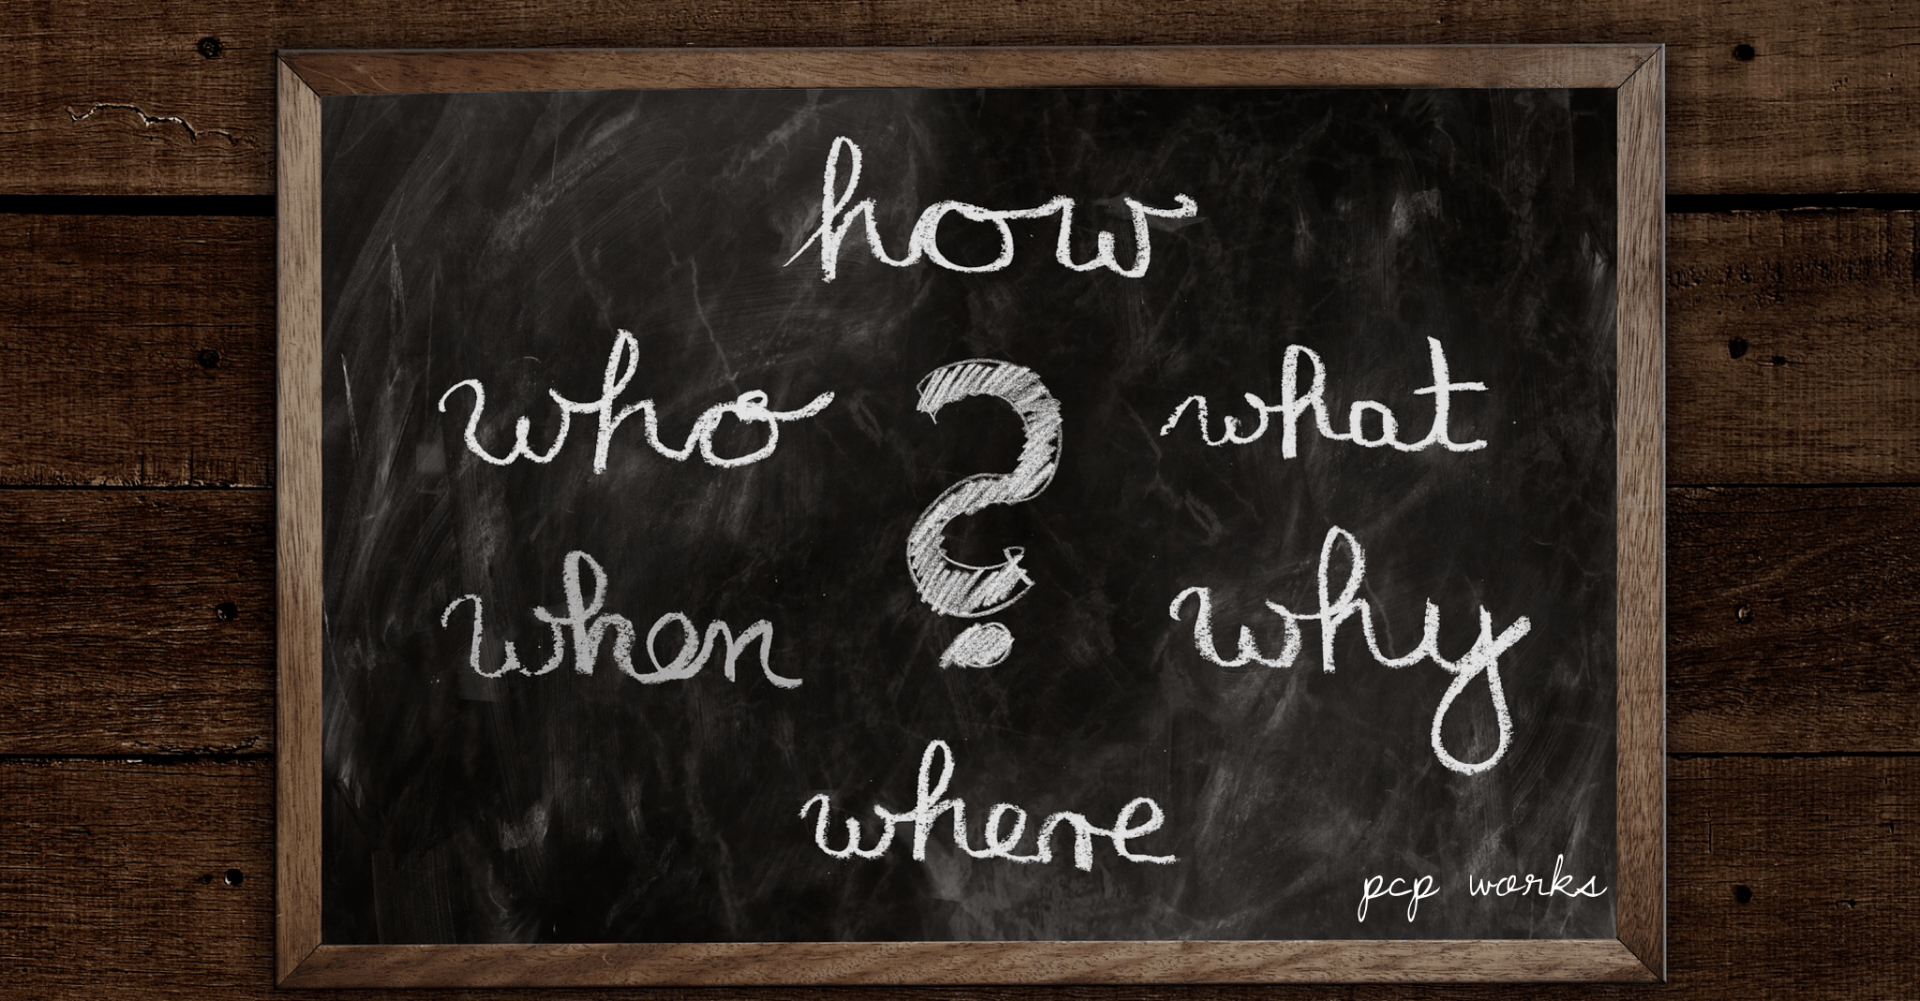 how
who ? what
when why
where
pcp works